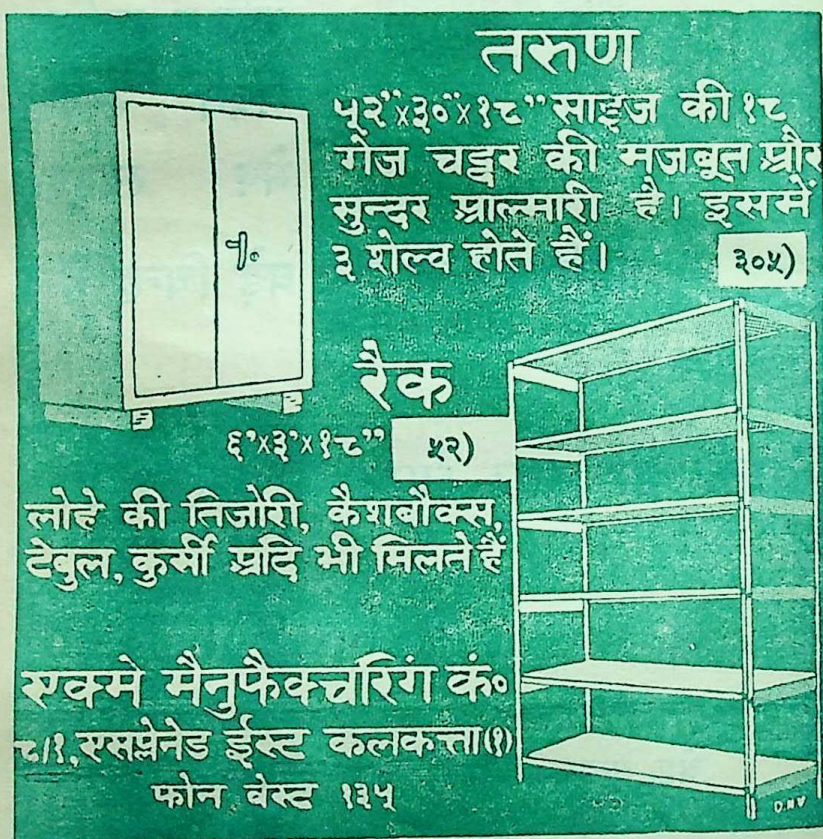 तरुण
५२"x३०"x१८" साइज की १८
गेज चद्दर की मजबूत और
सुन्दर आल्मारी है। इसमें
३ शेल्व होते हैं।
३०५)
रैक
६'x३'x१८"
५२)
लोहे की तिजोरी, कैशबौक्स,
टेबुल, कुर्सी आदि भी मिलते हैं
एक्मे मैनुफैक्चरिंग कं०
८/१, एसप्लेनेड ईस्ट कलकत्ता (१)
फोन वेस्ट १३५
D.N.V